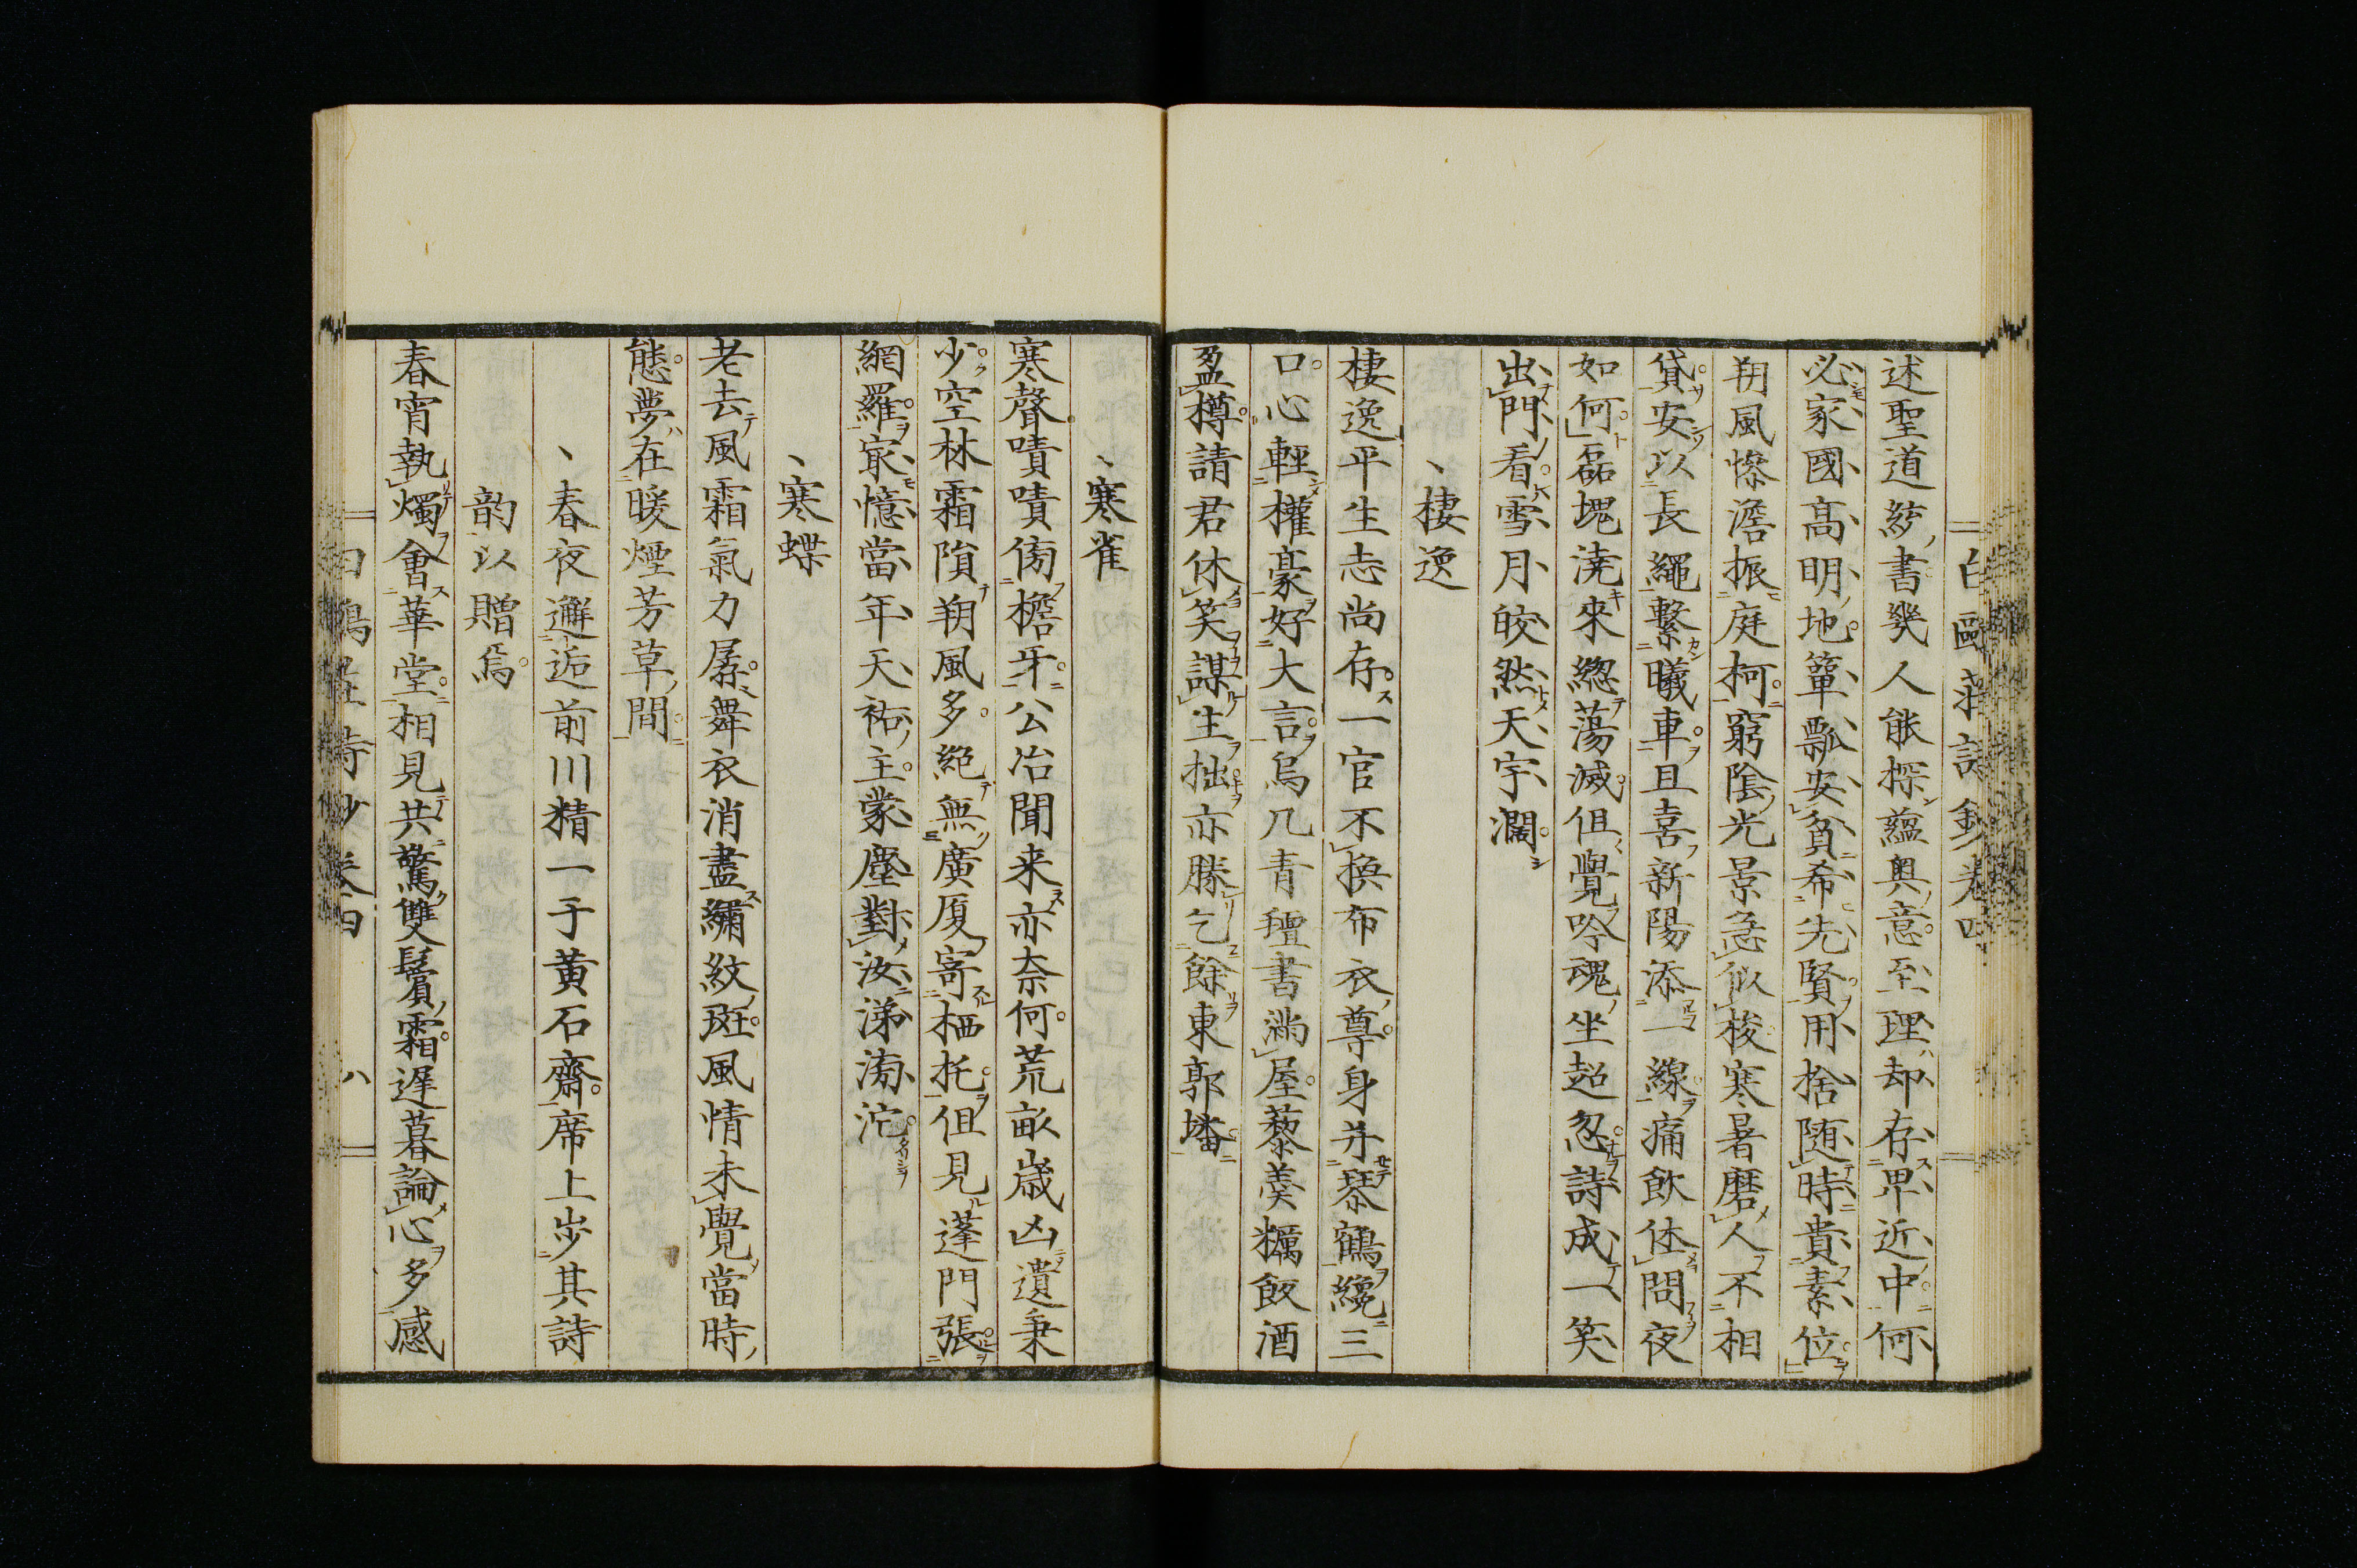 白鷗莊詩鈔卷四
述聖道絃書幾人能探蘊奧意至理却存卑近中何
必家國高明地簞瓢安貧希先賢用捨随時貴素位
朔風慘澹振庭柯窮陰光景急似梭寒暑磨人不相
貸安以長繩繫曦車且喜新陽添一線痛飲休問夜
如何磊塊澆來總蕩滅但覺吟魂坐超忽詩成一笑
出門看雪月皎然天宇濶
、棲逸
棲逸平生志尚存一官不換布衣尊身并琴鶴纔三
口心輕權豪好大言烏几青氊書滿屋藜羹糲飯酒
盈樽請君休笑謀生拙亦勝乞餘東郭墦
、寒雀
寒聲嘖嘖傍檐牙公冶聞来亦柰何荒畝歳凶遺秉
少空林霜隕朔風多絶無廣厦寄栖托但見蓬門張
網羅冣憶當年天祐主蒙塵對汝涕滂沱
、寒蝶
老去風霜氣力孱舞衣消盡繡紋斑風情未覺當時
態夢在暖煙芳草間
、春夜邂逅前川精一于黄石齋席上歩其詩
韵以贈焉
春宵執燭會華堂相見共驚雙鬢霜遲暮論心多感
白鷗莊詩鈔卷四 八